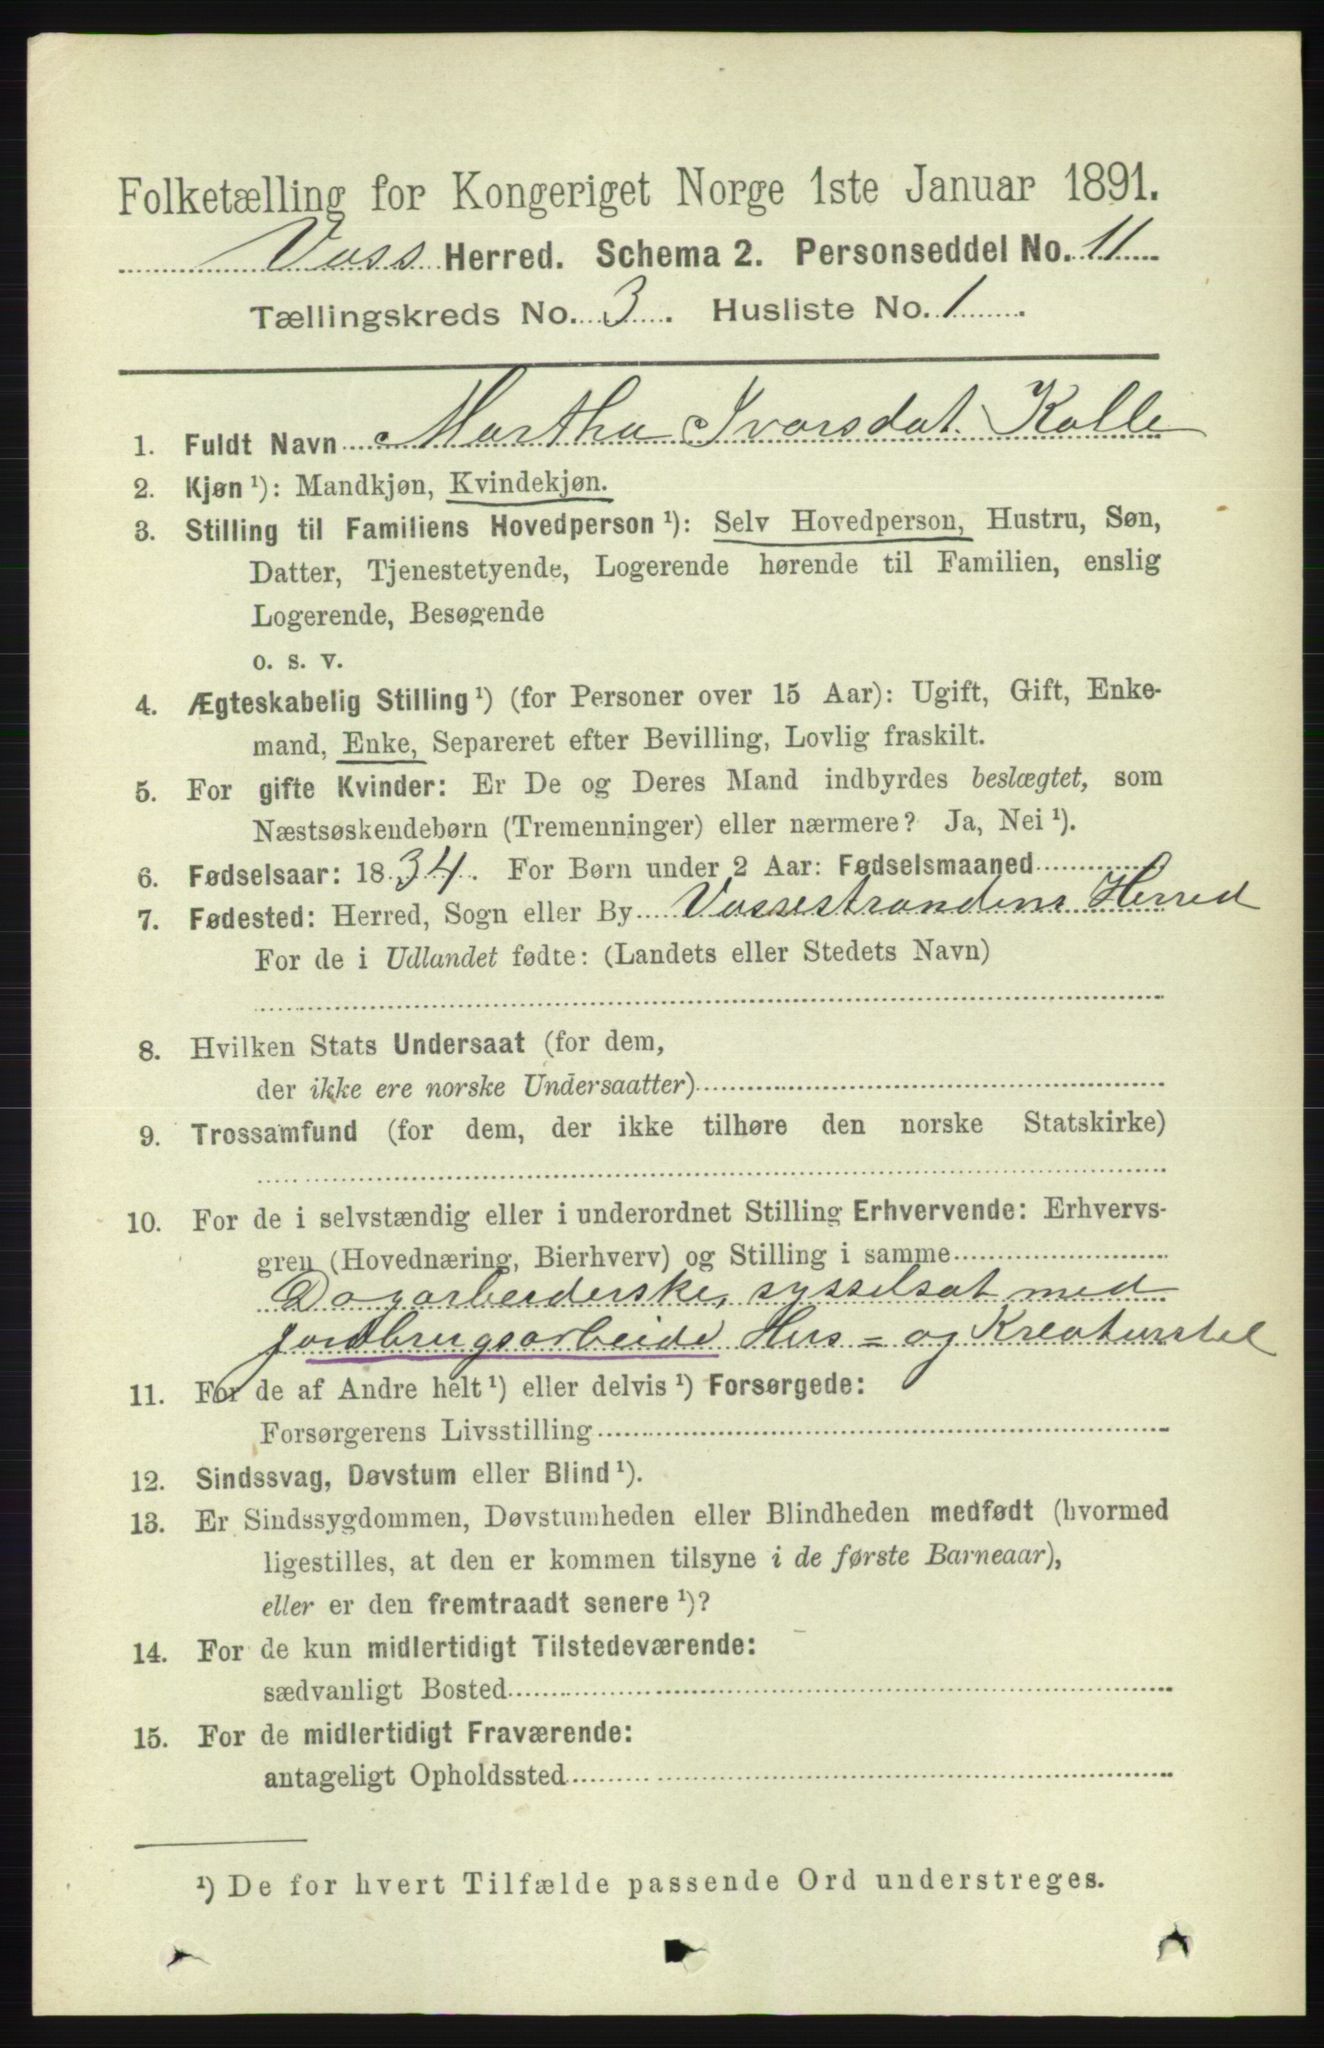 Folketælling for Kongeriget Norge 1ste Januar 1891.
Voss Herred. Schema 2. Personseddel No. 11
Tællingskreds No. 3. Husliste No. 1
1. Fuldt Navn Martha Ivarsdat. Kolle
2. Kjøn ¹): Mandkjøn, Kvindekjøn.
3. Stilling til Familiens Hovedperson ¹): Selv Hovedperson, Hustru, Søn,
Datter, Tjenestetyende, Logerende hørende til Familien, enslig
Logerende, Besøgende
o. s. v.
4. Ægteskabelig Stilling ¹) (for Personer over 15 Aar): Ugift, Gift, Enke-
mand, Enke, Separeret efter Bevilling, Lovlig fraskilt.
5. For gifte Kvinder: Er De og Deres Mand indbyrdes beslægtet, som
Næstsøskendebørn (Tremenninger) eller nærmere? Ja, Nei ¹).
6. Fødselsaar: 1834. For Børn under 2 Aar: Fødselsmaaned
7. Fødested: Herred, Sogn eller By Vossestrandens Herred
For de i Udlandet fødte: (Landets eller Stedets Navn)
8. Hvilken Stats Undersaat (for dem,
der ikke ere norske Undersaatter)
9. Trossamfund (for dem, der ikke tilhøre den norske Statskirke)
10. For de i selvstændig eller i underordnet Stilling Erhvervende: Erhvervs-
gren (Hovednæring, Bierhverv) og Stilling i samme
Dagarbeiderske, sysselsat med
jordbrugsarbeide Hus- og Kreaturstel
11. For de af Andre helt ¹) eller delvis ¹) Forsørgede:
Forsørgerens Livsstilling
12. Sindssvag, Døvstum eller Blind ¹).
13. Er Sindssygdommen, Døvstumheden eller Blindheden medfødt (hvormed
ligestilles, at den er kommen tilsyne i de første Barneaar),
eller er den fremtraadt senere ¹)?
14. For de kun midlertidigt Tilstedeværende:
sædvanligt Bosted
15. For de midlertidigt Fraværende:
antageligt Opholdssted
¹) De for hvert Tilfælde passende Ord understreges.